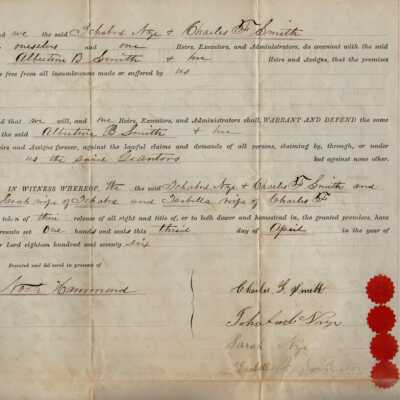 And we the said Ichabod Nye & Charles F Smith
ourselves and our Heirs, Executors, and Administrators, do covenant with the said
Albertine B Smith & her Heirs and Assigns, that the premises
are free from all incumbrances made or suffered by us
and that we will, and our Heirs, Executors, and Administrators shall, WARRANT AND DEFEND the same
the said Albertine B Smith & her
Heirs and Assigns forever, against the lawful claims and demands of all persons, claiming by, through, or under
us the said Grantors but against none other.
IN WITNESS WHEREOF, We the said Ichabod Nye & Charles F Smith and
Sarah wife of Ichabod and Isabella wife of Charles F
in token of their release of all right and title of, or to both dower and homestead in, the granted premises, have
hereunto set our hands and seals this third day of April in the year of
our Lord eighteen hundred and seventy six
Executed and delivered in presence of
Hammond
Charles F Smith
Ichabod Nye
Sarah Nye